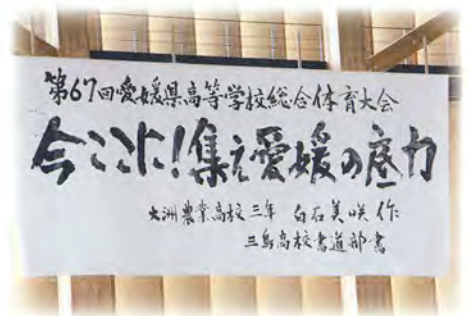 第67回愛媛県高等学校総合体育大会
今ここに!集え愛媛の底力
大洲農業高校三年 白石美咲 作
三島高校書道部 書